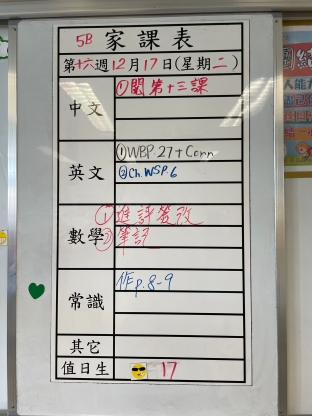 5B 家課表
第十六週12月17日(星期二)
中文
①閱第十三課
英文
①WBP.27+Corr
②Ch.WSP.6
數學
①進評簽改
②筆記
常識
作p.8-9
其它
值日生 17